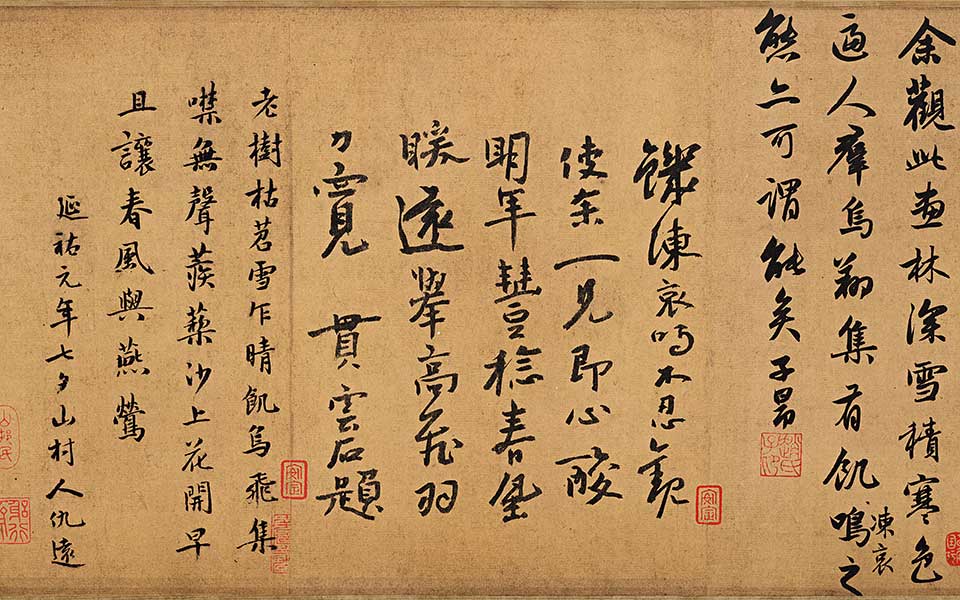 余觀此畫林深雪積寒色
逼人羣烏翔集有飢凍哀鳴之
態亦可謂能矣子昂
趙氏子昂
饑凍哀鳴不忍觀
使余一見即心酸
明年豐稔春
暖遠舉高飛羽
力寬 貫雲石題
老樹枯苕雪乍晴飢烏飛集
噤無聲蒺藜沙上花開早
且讓春風與燕鶯
延祐元年七夕山村人仇遠